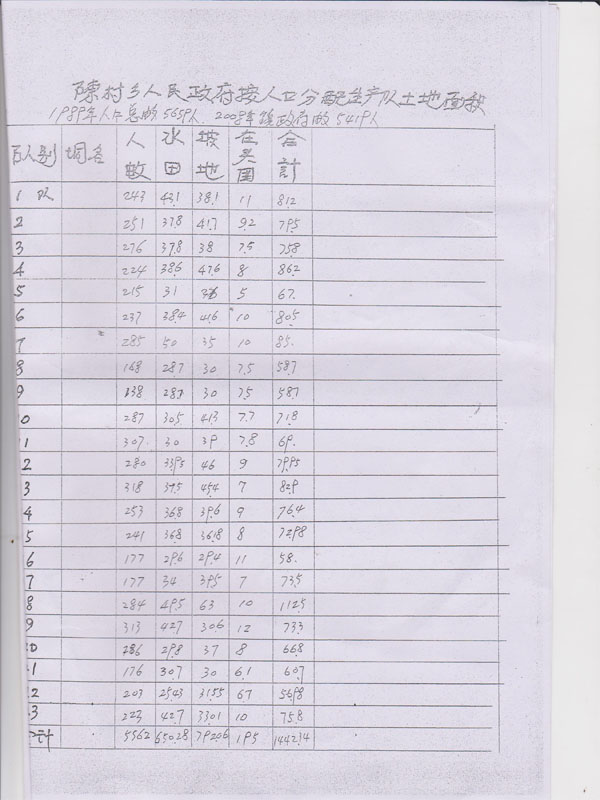 陳村乡人民政府按人口分配生产队土地面积
1989年人口总的5659人. 2008年镇政府的5419人
队别 垌名 人数 水田 坡地 在头園 合計
1 队 243 43.1 38.1 11 81.2
2 251 37.8 41.7 9.2 79.5
3 276 37.8 38 7.5 75.8
4 224 38.6 47.6 8 86.2
5 215 31 5 67.
6 237 38.4 41.6 10 80.5
7 285 50 35 10 85.
8 168 28.7 30 7.5 58.7
9 138 28.7 30 7.5 58.7
0 287 30.5 41.3 7.7 71.8
1 307. 30 39 7.8 69.
2 280 33.95 46 9 79.95
3 318 37.5 45.4 7 82.9
4 253 36.8 39.6 9 76.4
5 241 36.8 36.18 8 72.98
6 177 29.6 29.4 11 58.
7 177 34 39.5 7 73.5
8 284 49.5 63 10 112.5
9 313 42.7 30.6 12 73.3
20 286 29.8 37 8 66.8
1 176 30.7 30 6.1 60.7
2 203 25.43 31.55 6.7 56.98
3 223 42.7 33.01 10 75.8
计 5562 650.28 792.06 195 1442.34